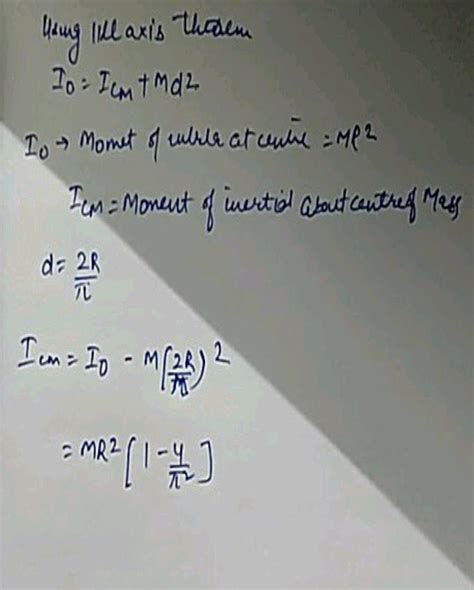 Using ||el axis theorem
I₀ = I_CM + Md2
I₀ → Moment of at centre = MR²
I_CM = Moment of inertial about centre of Mass
d = 2R/π
I_cm = I₀ - M(2R/π)²
= MR² [1 - 4/π²]